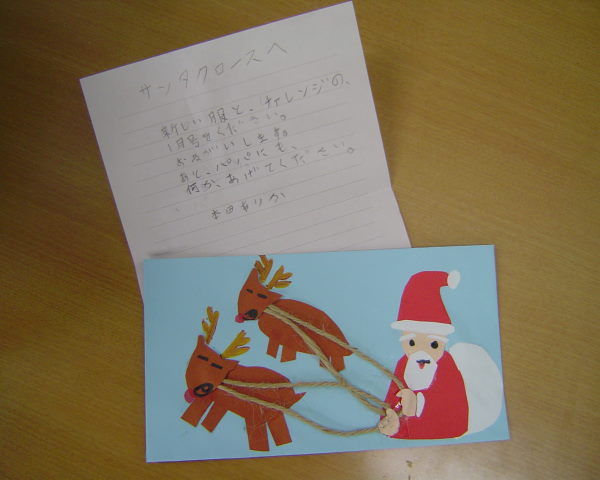 サンタクロースへ
新しい服と、チャレンジの、
1月号をください。
おねがいします。
あと、パパにも、
何か、あげてください。
本田ありか